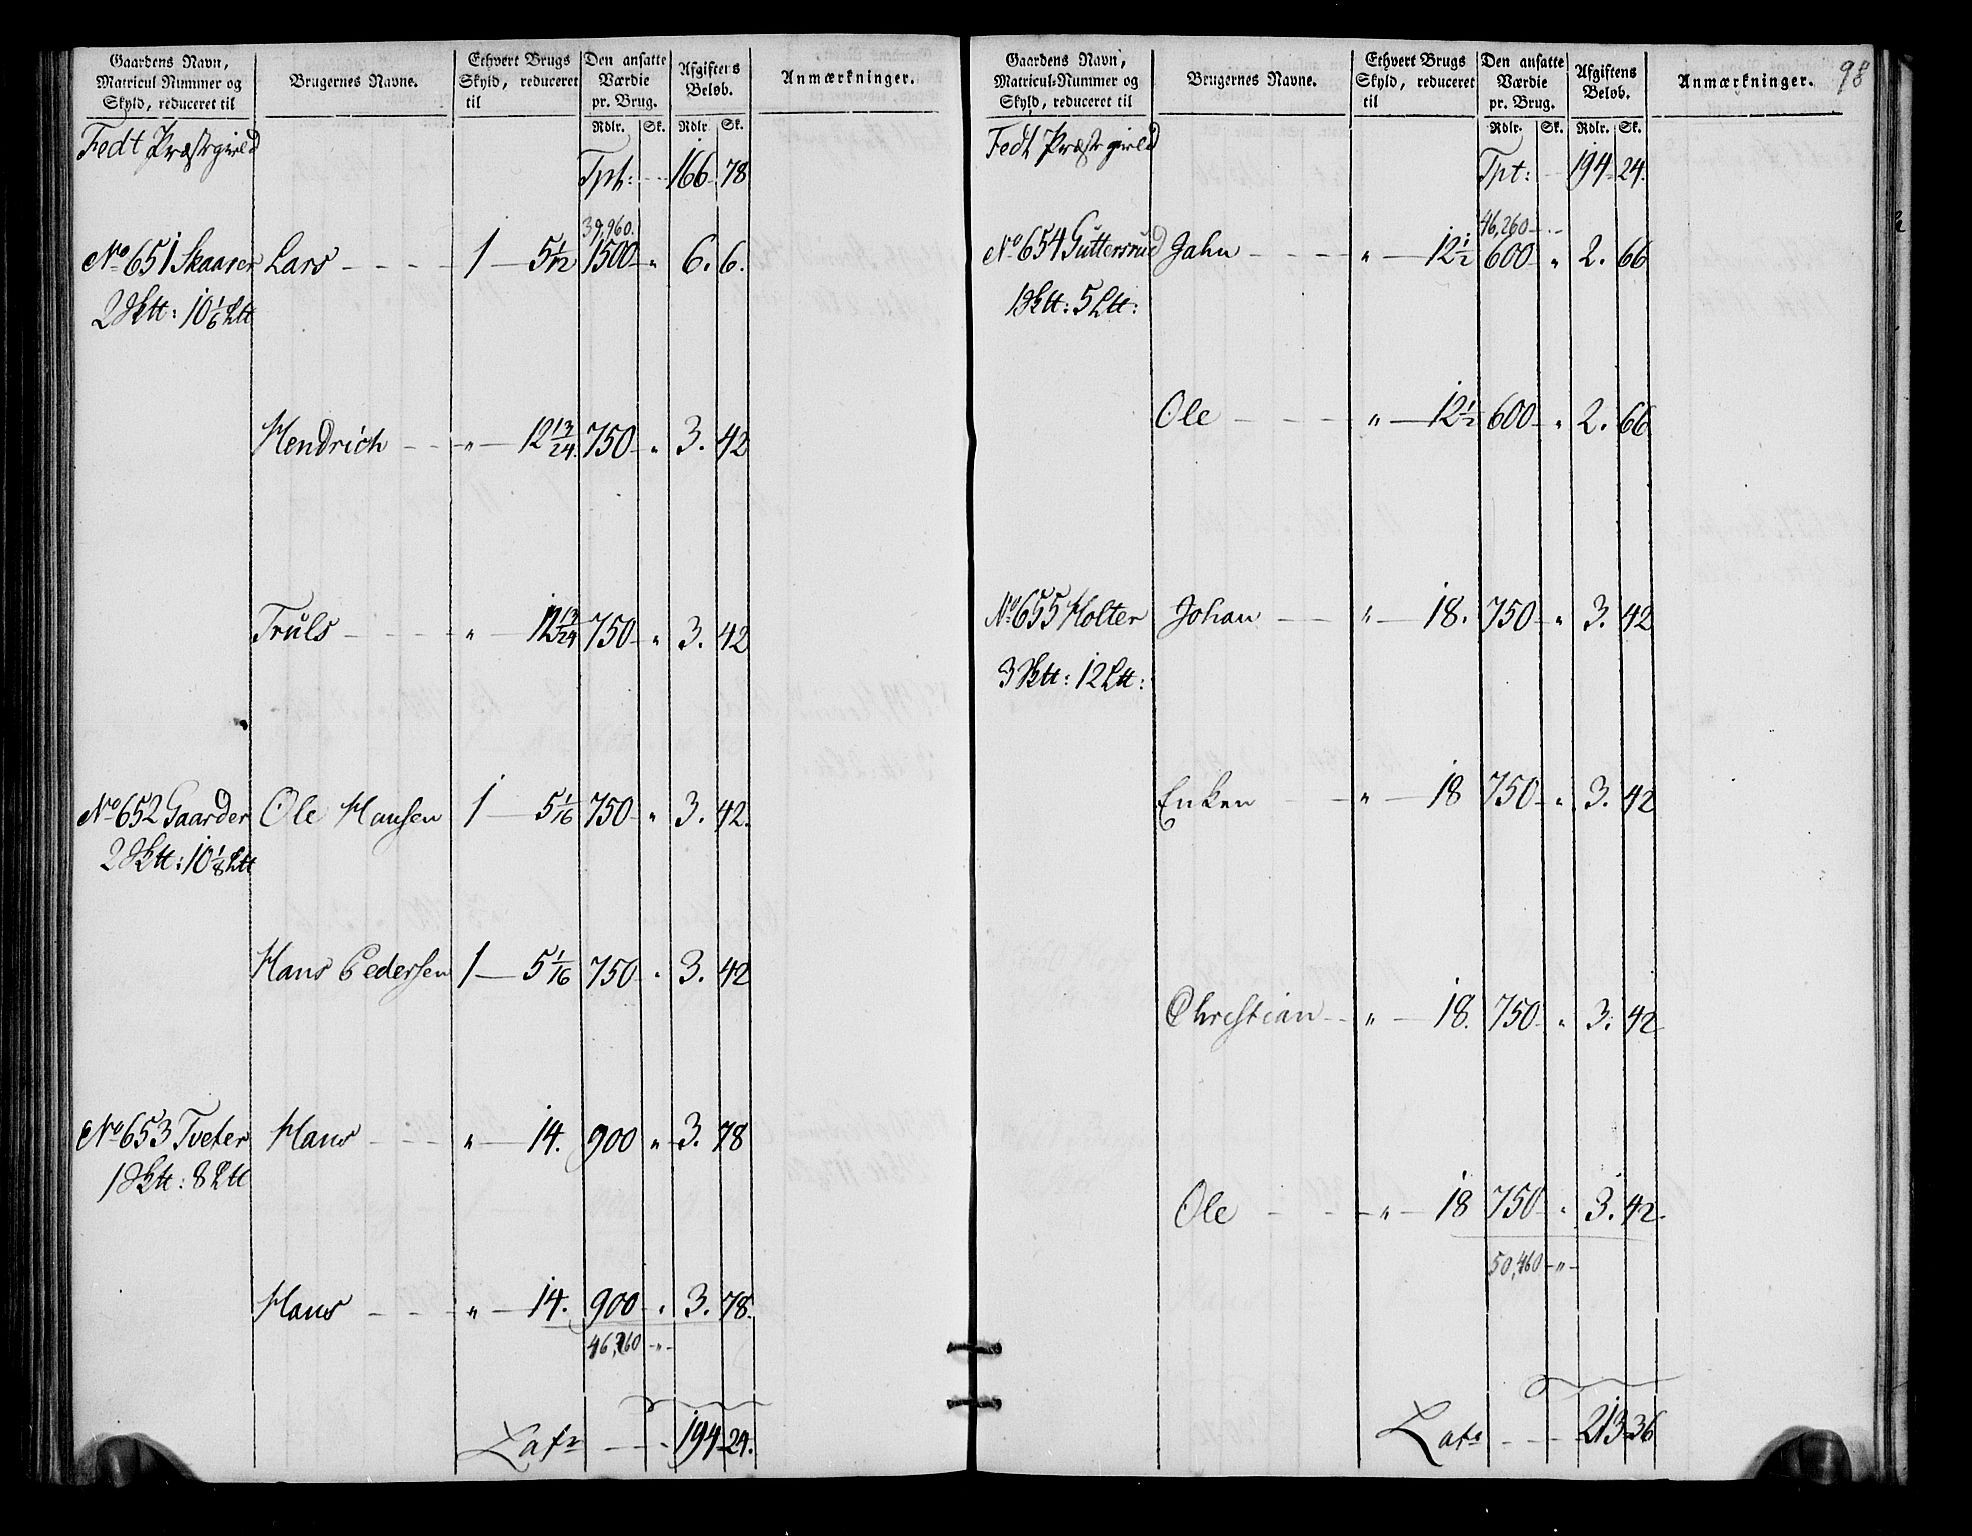 Gaardens Navn, Matricul Nummer og Skyld, reduceret til | Brugernes Navne. | Ethvert Brugs Skyld, reduceret til | Den ansatte Værdie pr. Brug. | Afgiftens Beløb. | Anmærkninger.
Rdlr. Sk. Rdlr Sk.
Fedt Præstegield
Tpt: 166 78
39,960.
No 651 Skaarer Lars 1 – 5 5/12 1500 " 6. 6.
2 Sktt: 10 1/6 Ltt
Hendrich " – 12 13/24. 750 " 3. 42
Truls " – 12 13/24 750 " 3. 42
No 652 Gaarder Ole Hansen 1 – 5 1/16 750 " 3. 42.
2 Sktt: 10 1/8 Ltt
Hans Pedersen 1 – 5 1/16 750 " 3. 42
No 653 Tveter Hans " – 14. 900 " 3. 78
1 Sktt: 8 Ltt
Hans " – 14. 900 " 3. 78.
46,260 "
Lat 194 24.
Gaardens Navn, Matricul-Nummer og Skyld, reduceret til | Brugernes Navne. | Ethvert Brugs Skyld, reduceret til | Den ansatte Værdie pr. Brug. | Afgiftens Beløb. | Anmærkninger.
98
Rdlr. Sk. Rdlr. Sk.
Fedt Præstegield
Tpt: 194 24.
46,260
No 654 Guttersrud Jahn " – 12 1/2 600 " 2. 66
1 Sktt: 5 Ltt:
Ole " – 12 1/2 600 " 2. 66
No 655 Holter Johan " – 18. 750 " 3. 42
3 Sktt: 12 Ltt:
Enken " – 18 750 " 3. 42
Christian " – 18. 750 " 3. 42
Ole " – 18 750 " 3. 42.
50,460 "
Lat 213 36